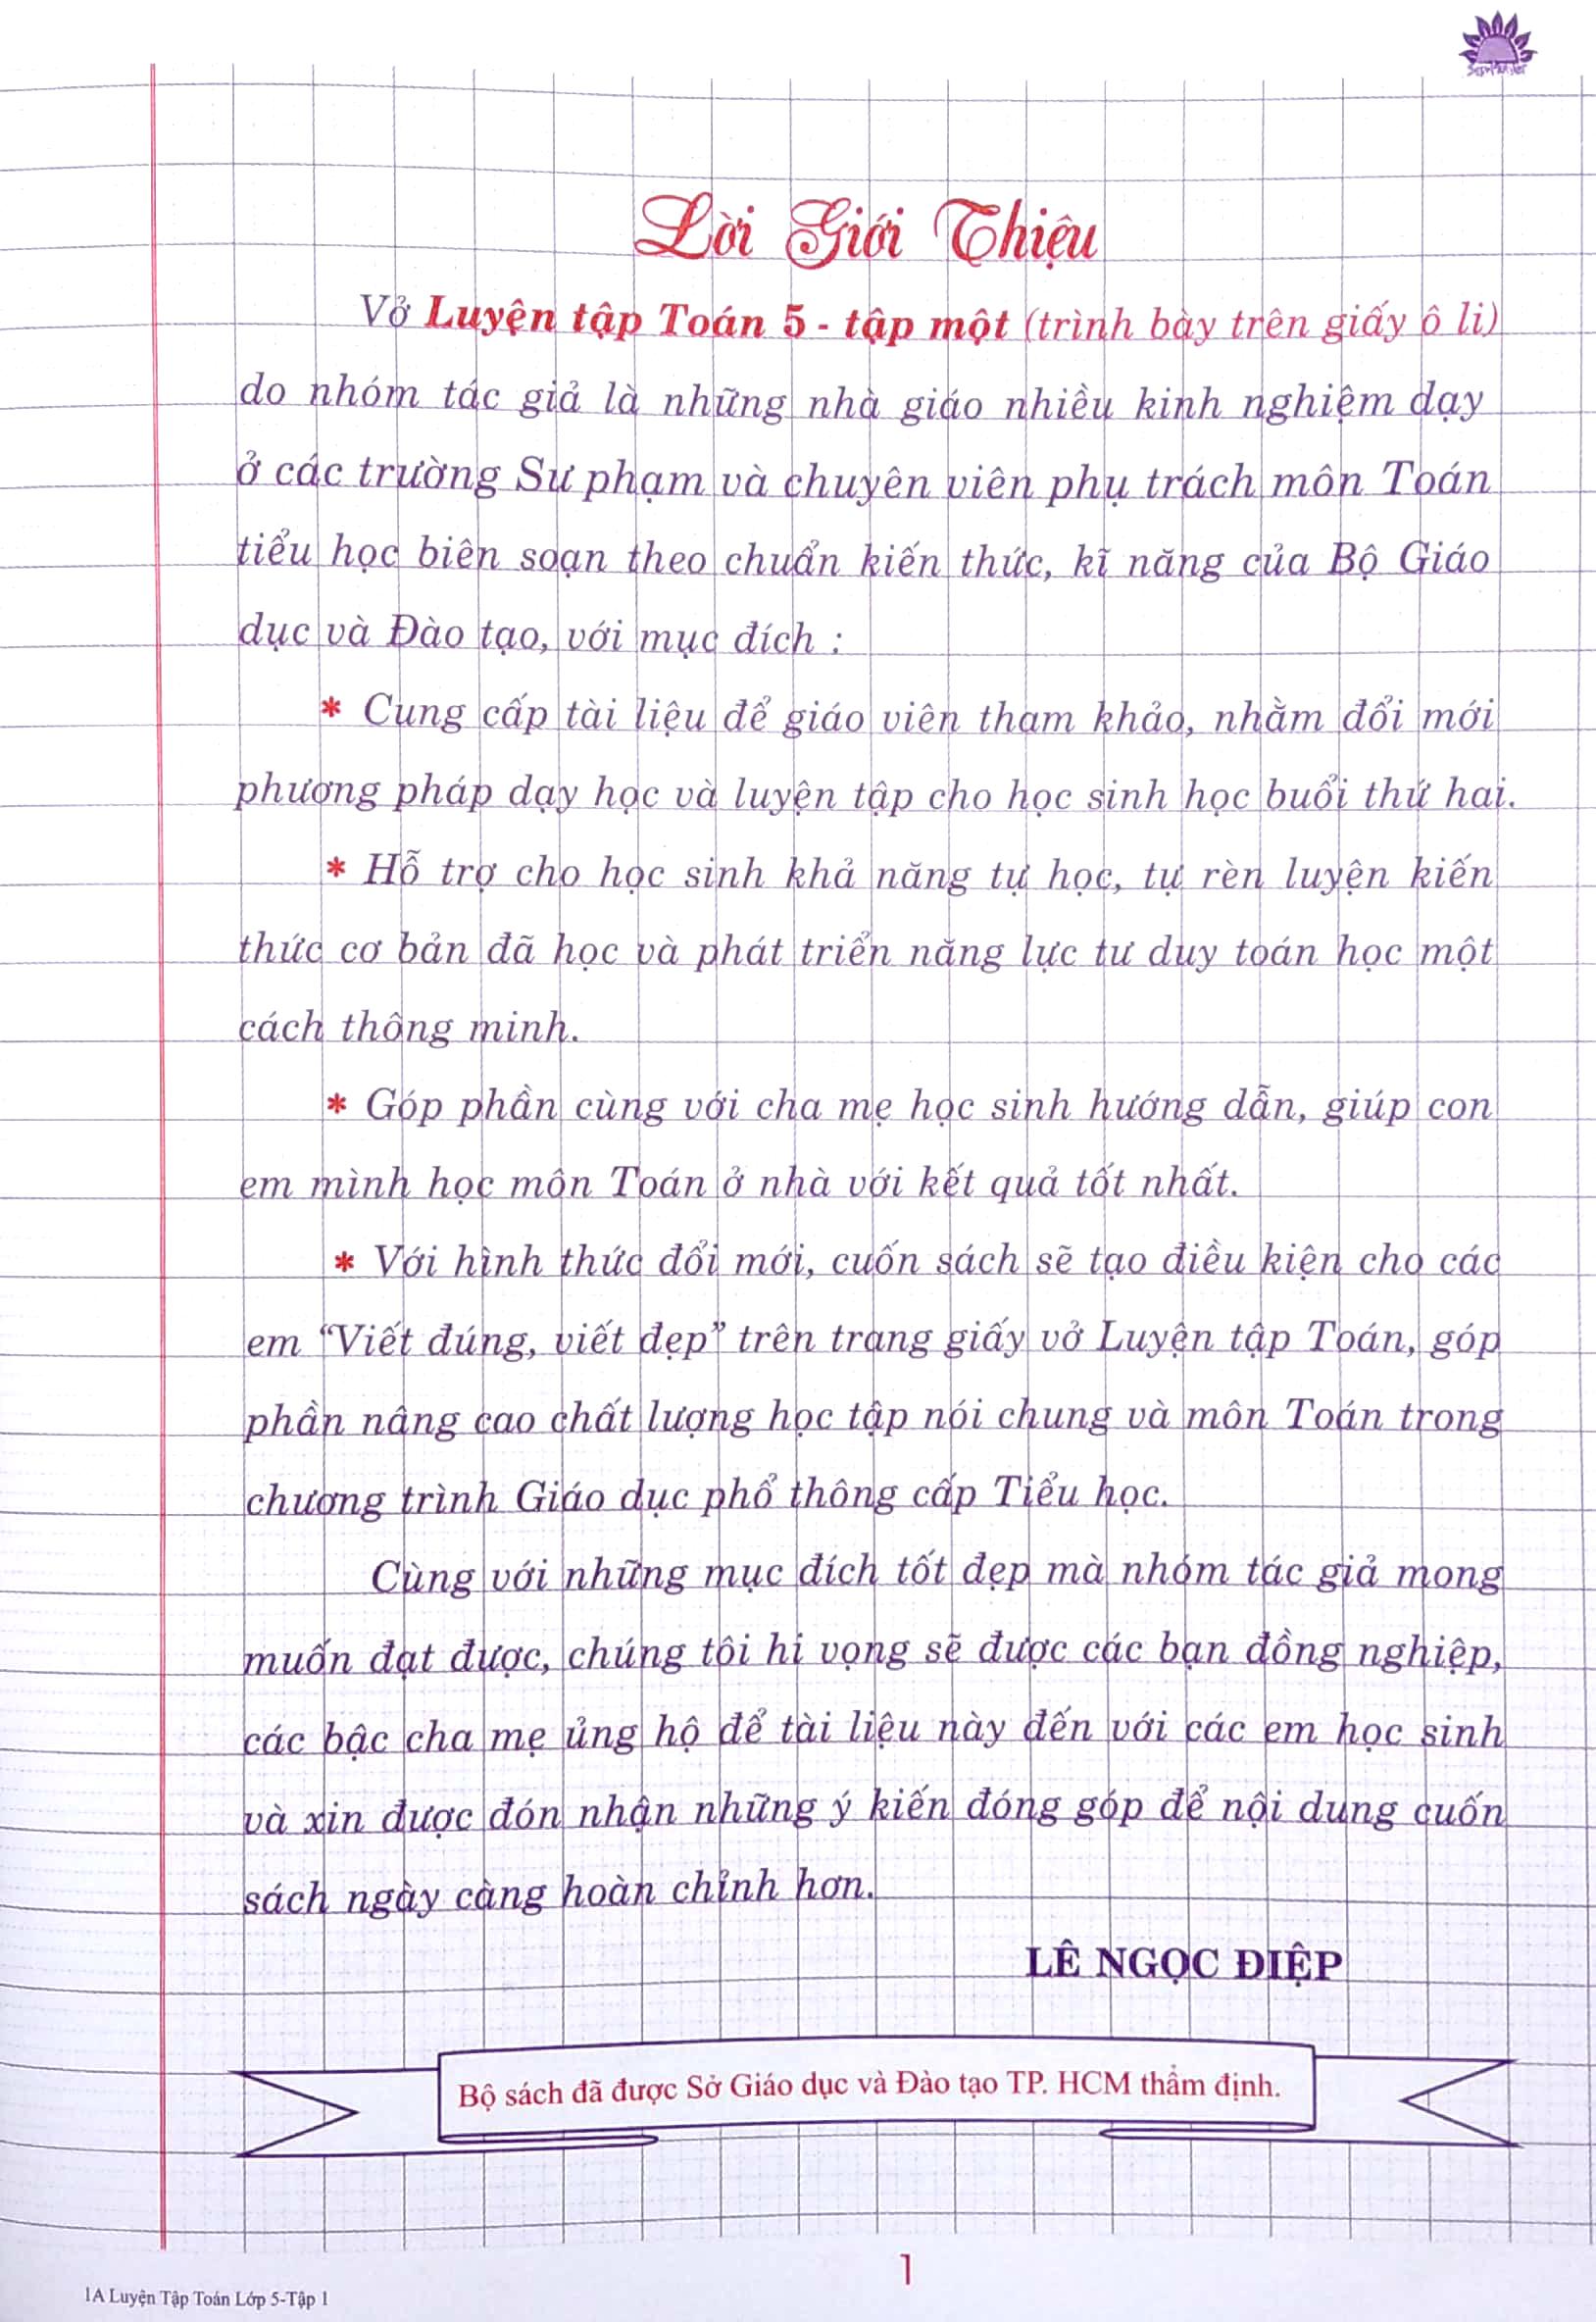 Lời Giới Thiệu
Vở Luyện tập Toán 5 - tập một (trình bày trên giấy ô li)
do nhóm tác giả là những nhà giáo nhiều kinh nghiệm dạy
ở các trường Sư phạm và chuyên viên phụ trách môn Toán
tiểu học biên soạn theo chuẩn kiến thức, kĩ năng của Bộ Giáo
dục và Đào tạo, với mục đích :
* Cung cấp tài liệu để giáo viên tham khảo, nhằm đổi mới
phương pháp dạy học và luyện tập cho học sinh học buổi thứ hai.
* Hỗ trợ cho học sinh khả năng tự học, tự rèn luyện kiến
thức cơ bản đã học và phát triển năng lực tư duy toán học một
cách thông minh.
* Góp phần cùng với cha mẹ học sinh hướng dẫn, giúp con
em mình học môn Toán ở nhà với kết quả tốt nhất.
* Với hình thức đổi mới, cuốn sách sẽ tạo điều kiện cho các
em “Viết đúng, viết đẹp” trên trang giấy vở Luyện tập Toán, góp
phần nâng cao chất lượng học tập nói chung và môn Toán trong
chương trình Giáo dục phổ thông cấp Tiểu học.
Cùng với những mục đích tốt đẹp mà nhóm tác giả mong
muốn đạt được, chúng tôi hi vọng sẽ được các bạn đồng nghiệp,
các bậc cha mẹ ủng hộ để tài liệu này đến với các em học sinh
và xin được đón nhận những ý kiến đóng góp để nội dung cuốn
sách ngày càng hoàn chỉnh hơn.
LÊ NGỌC ĐIỆP
Bộ sách đã được Sở Giáo dục và Đào tạo TP. HCM thẩm định.
1
1A Luyện Tập Toán Lớp 5-Tập 1